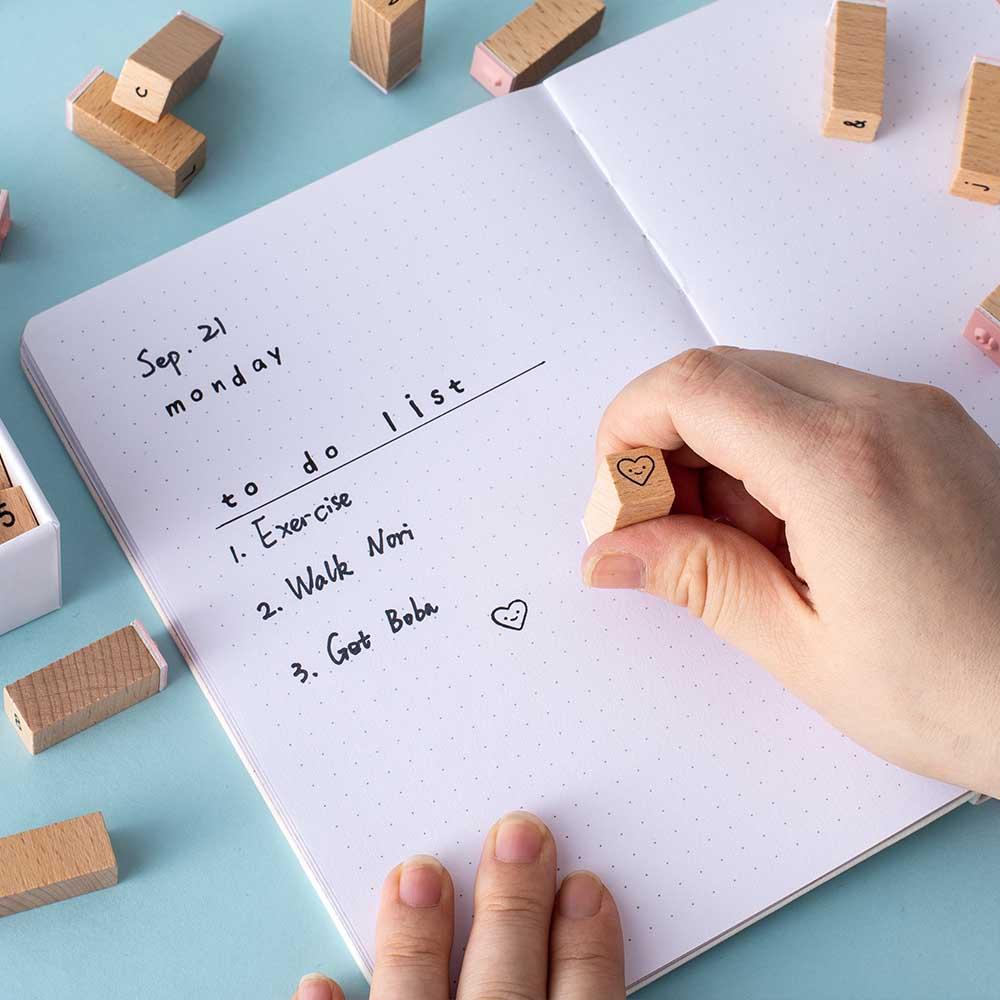 Sep. 21
monday
to do list
1. Exercise
2. Walk Nori
3. Get Boba
c
&
j
5